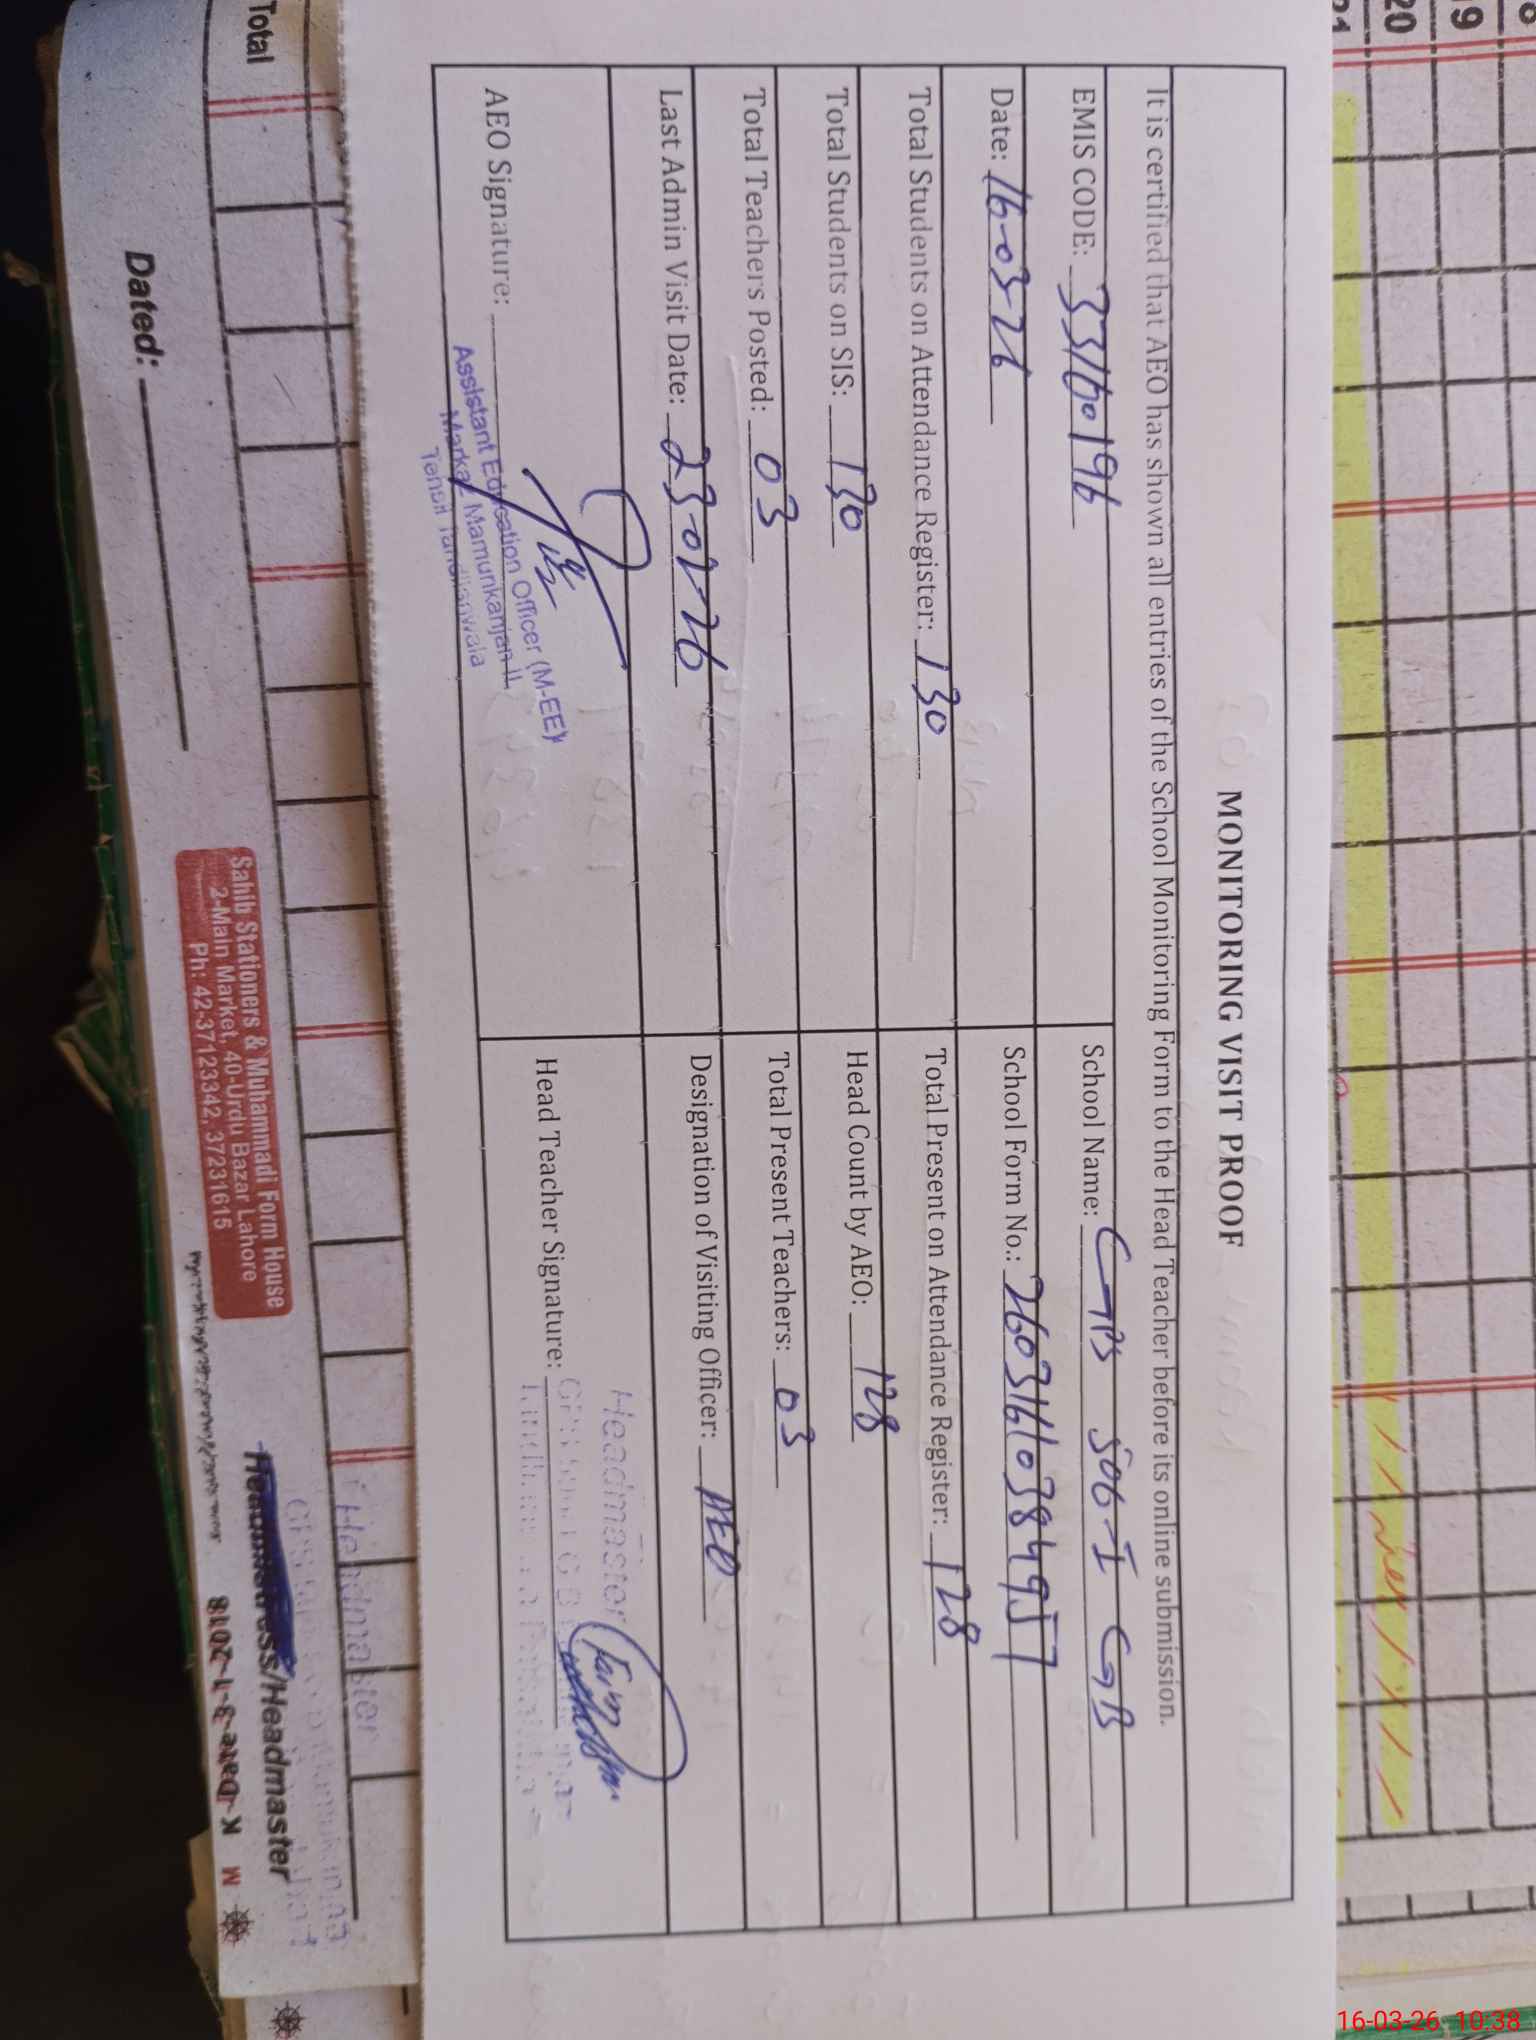 8
19
20
21
MONITORING VISIT PROOF
It is certified that AEO has shown all entries of the School Monitoring Form to the Head Teacher before its online submission.
EMIS CODE: 33160196
School Name: GPS 506-I GB
Date: 16-03-26
School Form No.: 26031610384957
Total Students on Attendance Register: 130
Total Present on Attendance Register: 128
Total Students on SIS: 130
Head Count by AEO: 128
Total Teachers Posted: 03
Total Present Teachers: 03
Last Admin Visit Date: 23-02-26
Designation of Visiting Officer: AEO
AEO Signature:
Assistant Education Officer (M-EE)
Markaz Mamunkanjan II
Tehsil Tandlianwala
Head Teacher Signature:
Headmaster
Total
Headmaster
Dated:
Headmistress/Headmaster
Sahib Stationers & Muhammadi Form House
2-Main Market, 40-Urdu Bazar Lahore
Ph: 42-37123342, 37231615
K-Date-3-1-2018
M
16-03-26 10:38